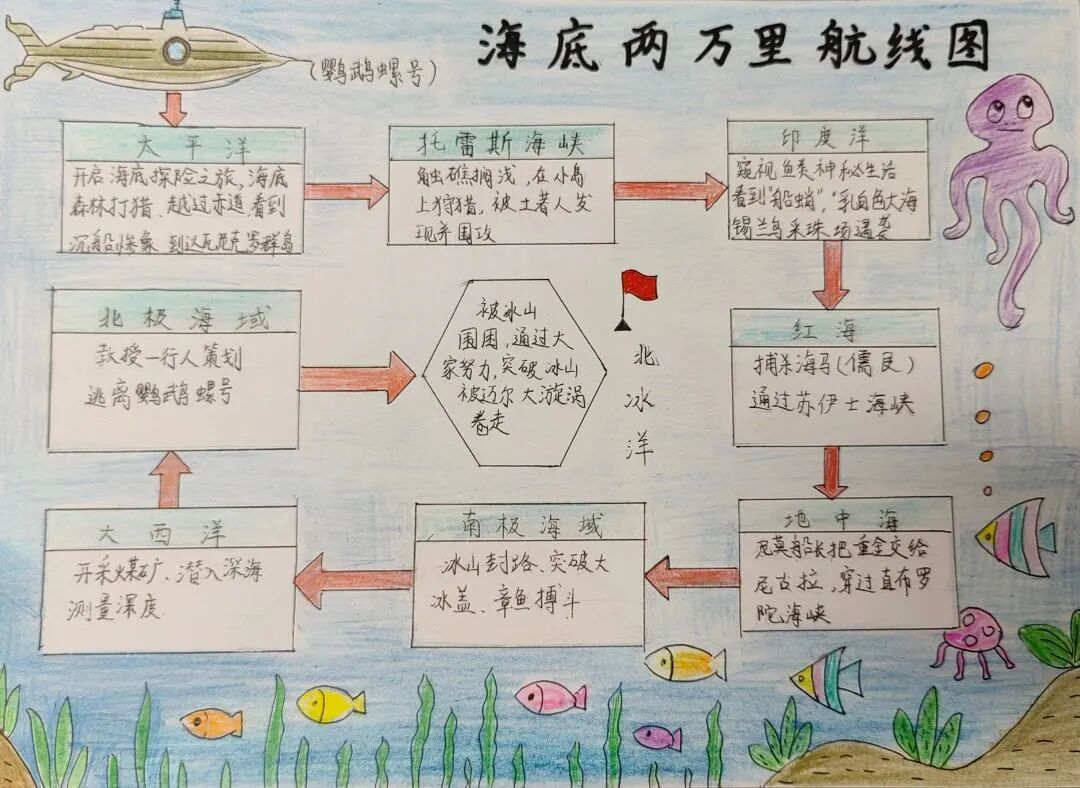 海底两万里航线图
(鹦鹉螺号)
太平洋
开启海底探险之旅,海底
森林打猎、越过赤道,看到
沉船惨象 到达瓦尼克罗群岛
托雷斯海峡
触礁搁浅,在小岛
上狩猎,被土著人发
现并围攻
印度洋
窥视鱼类神秘生活
看到"船蛸","乳白色大海
锡兰岛采珠场遇袭
红海
捕杀海马(儒艮)
通过苏伊士海峡
地中海
尼莫船长把重金交给
尼古拉,穿过直布罗
陀海峡
南极海域
冰山封路、突破大
冰盖、章鱼搏斗
大西洋
开采煤矿、潜入深海
测量深度.
北极海域
教授一行人策划
逃离鹦鹉螺号
被冰山
围困,通过大
家努力,突破冰山
被迈尔大漩涡
卷走
北
冰
洋